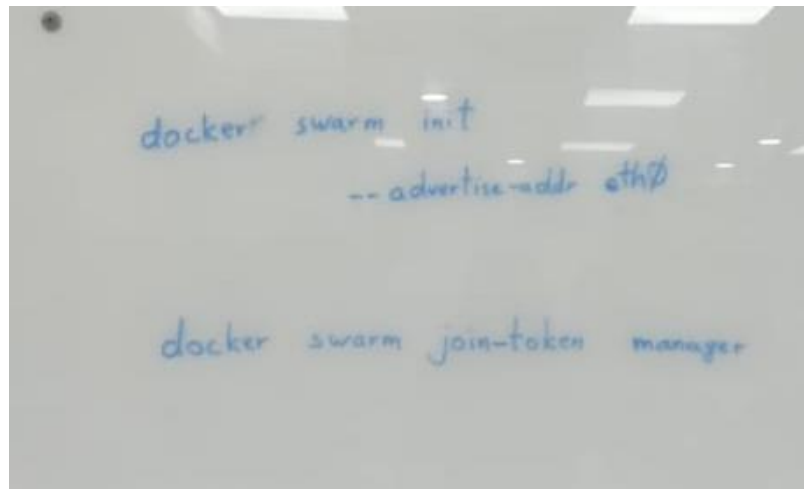 docker swarm init
--advertise-addr eth0
docker swarm join-token manager